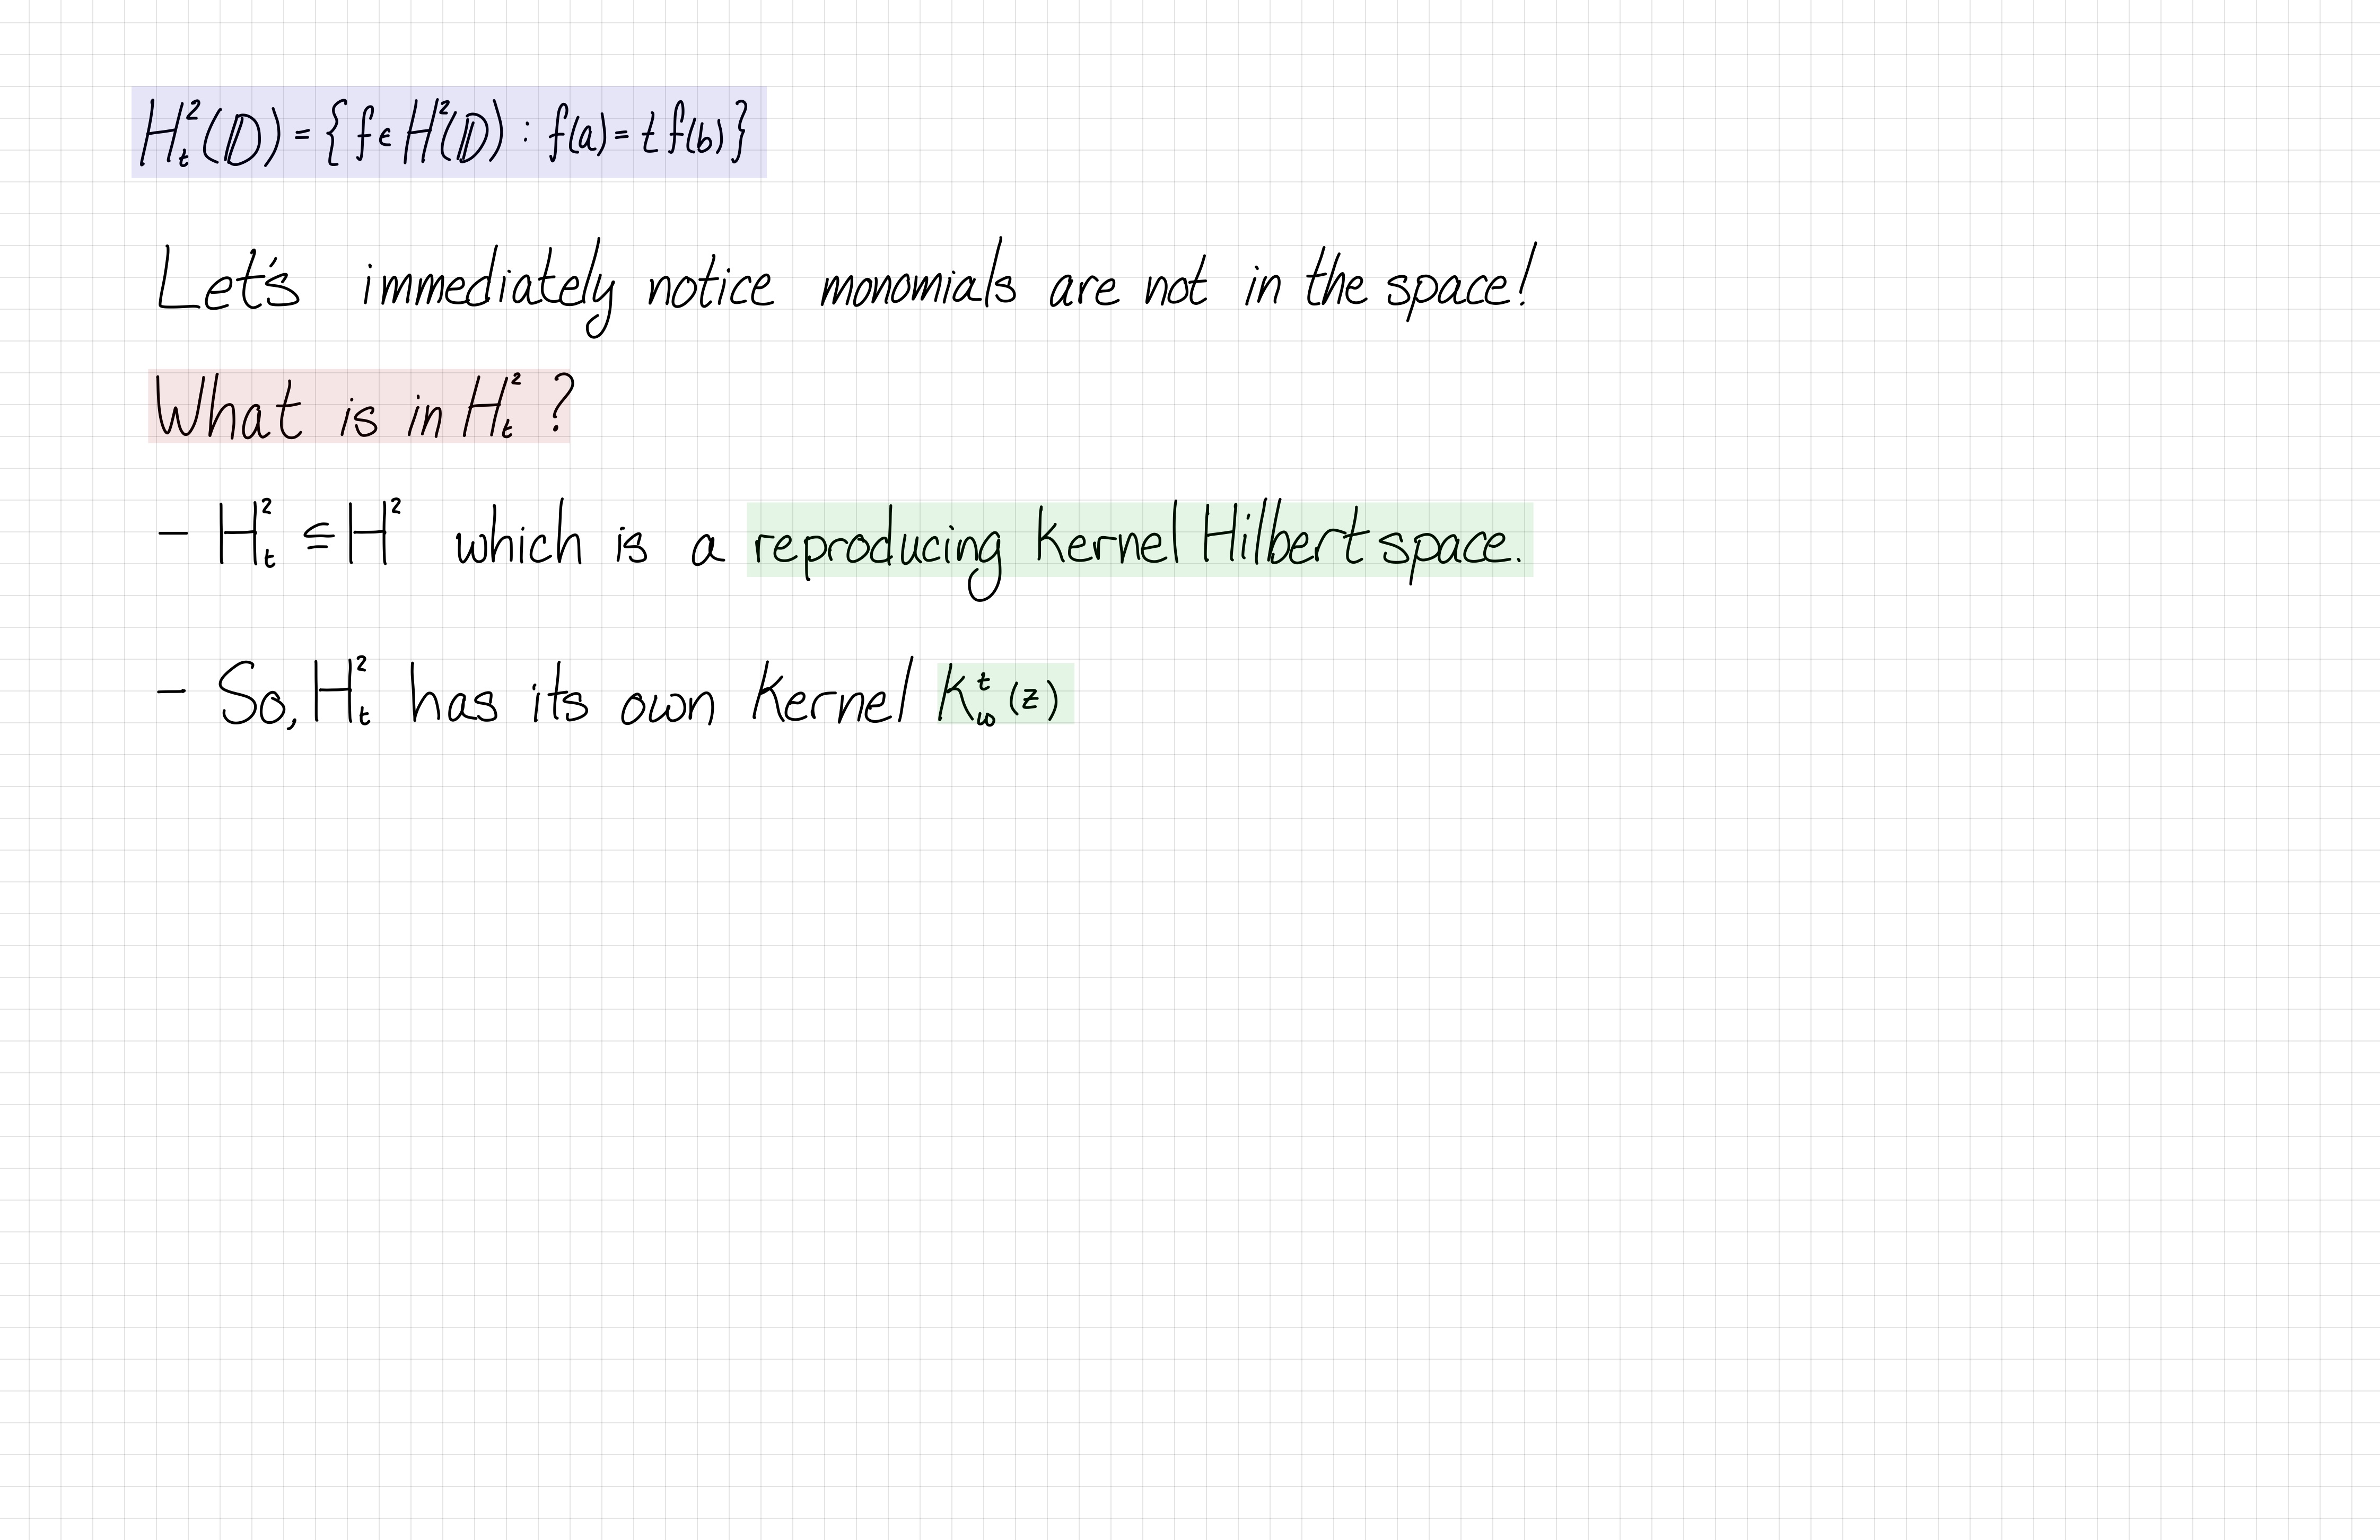 H²ₜ(𝔻) = {f ∈ H²(𝔻) : f(a) = t f(b)}
Let's immediately notice monomials are not in the space!
What is in H²ₜ ?
- H²ₜ ≦ H² which is a reproducing kernel Hilbert space.
- So, H²ₜ has its own kernel kᵗ_w(z)